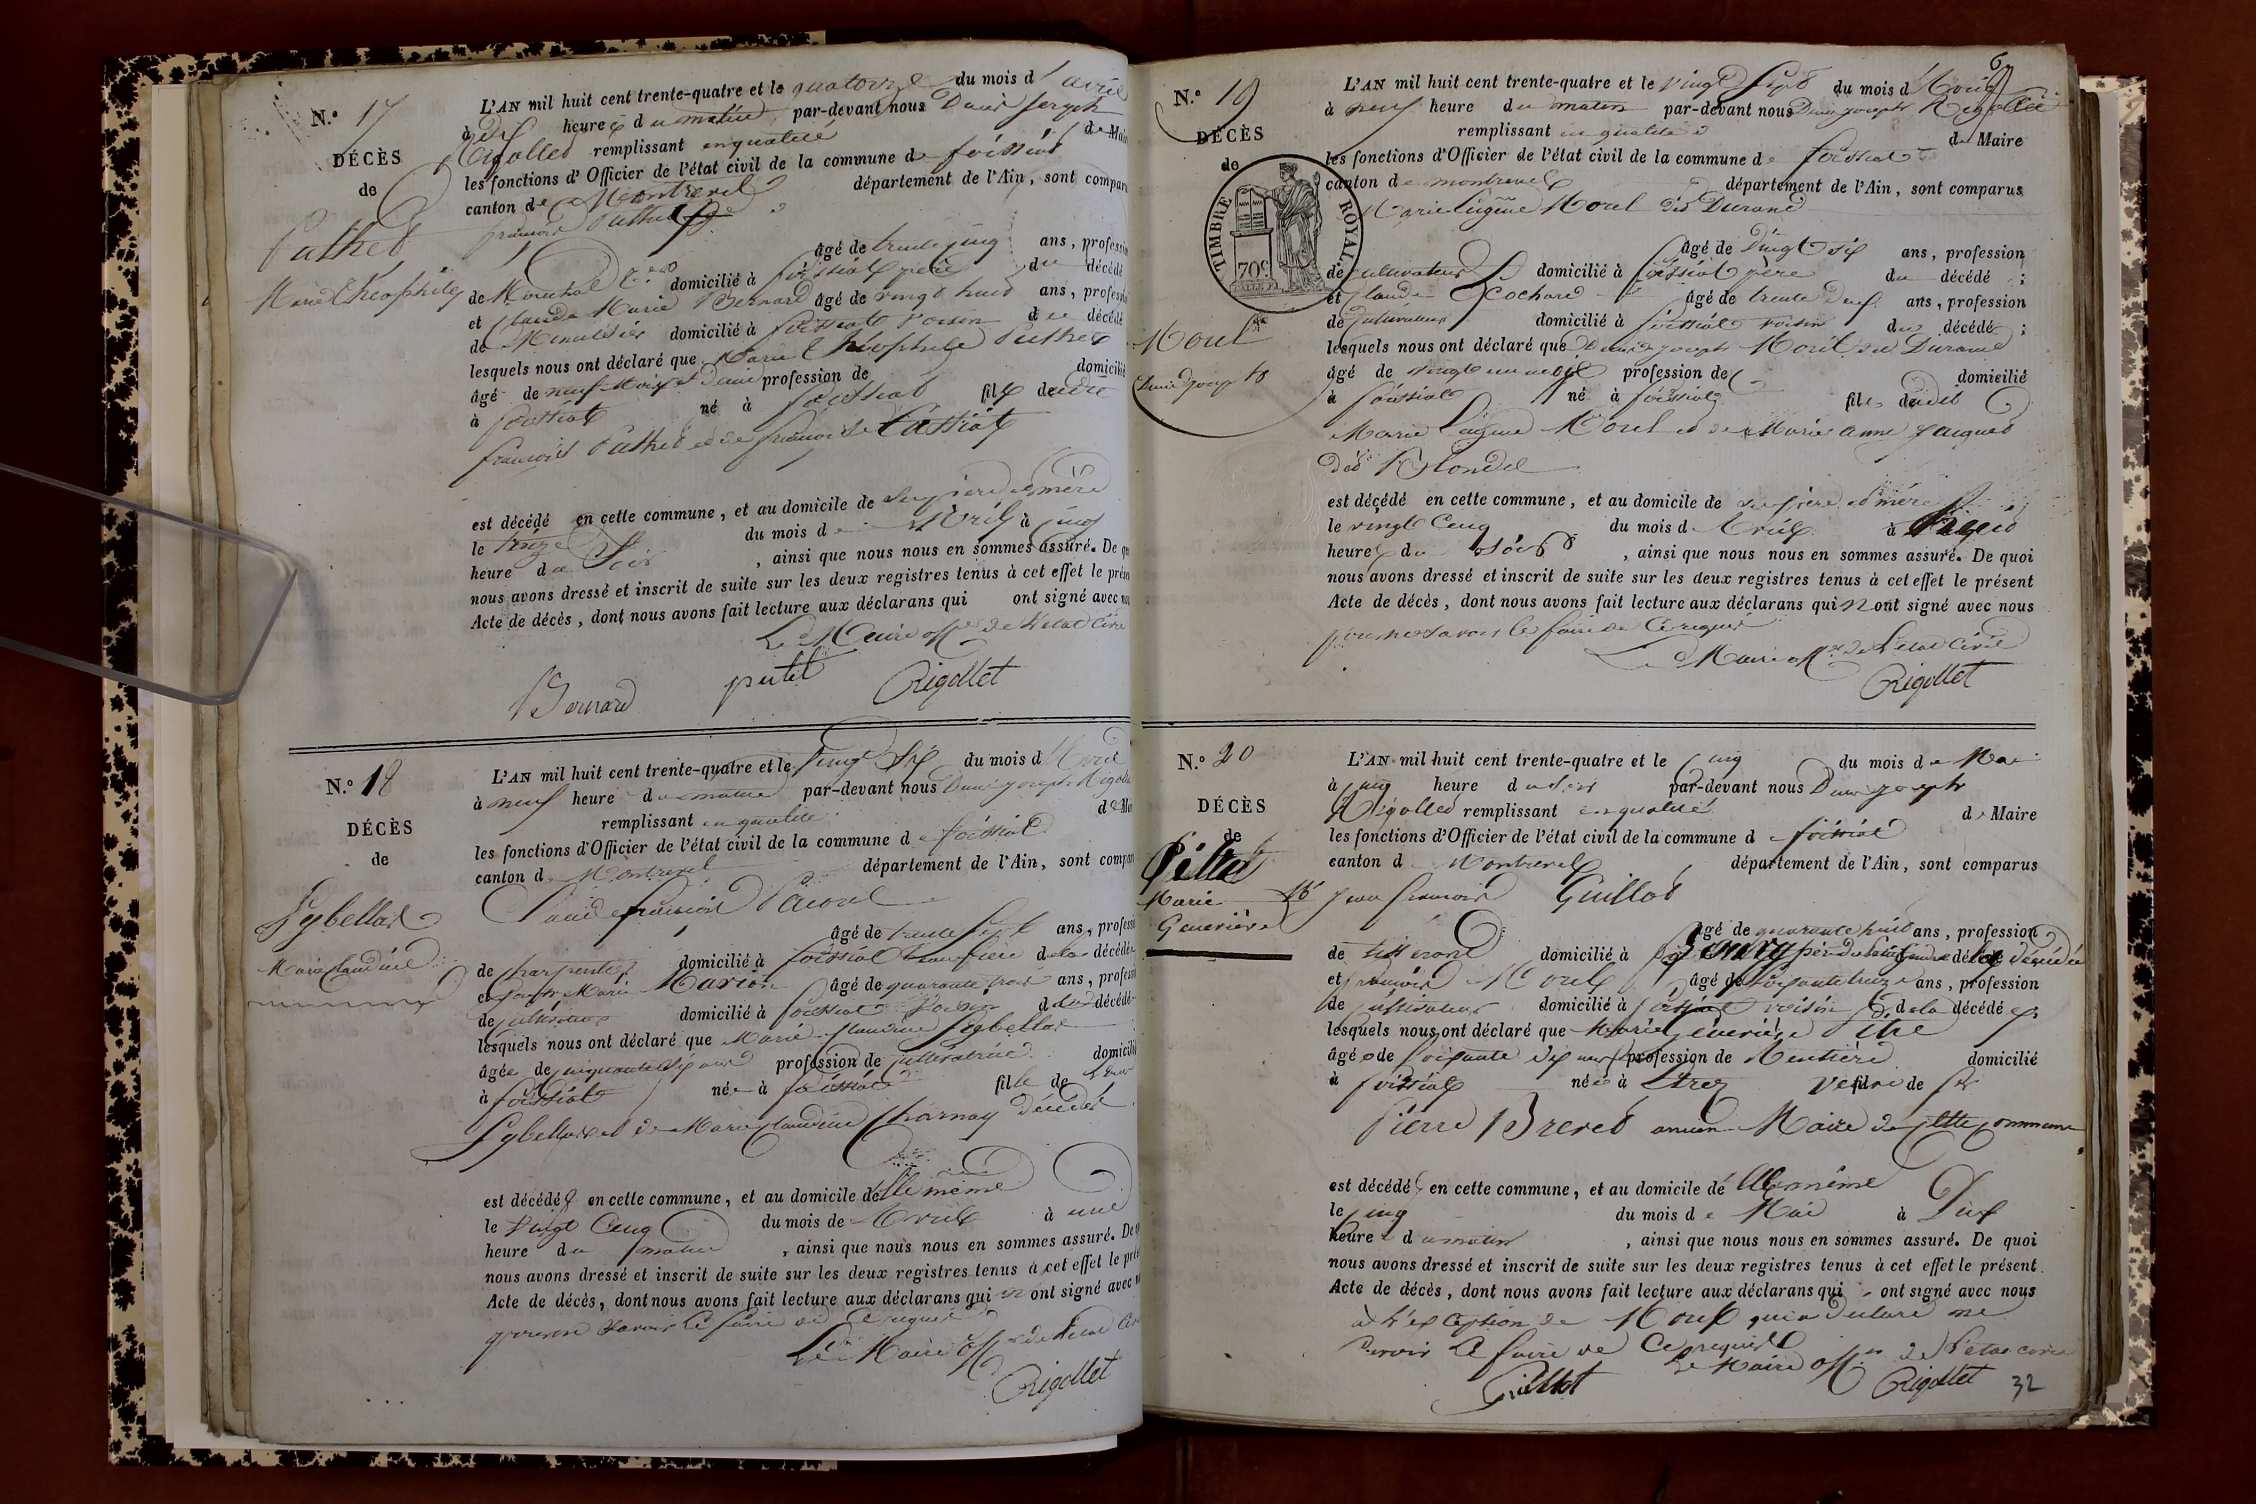 N.º 17
DÉCÈS
de
Puthet
Marie Théophile
L'AN mil huit cent trente-quatre et le quatorze du mois d'avril
à dix heures du matin, par-devant nous Denis Joseph
Rigollet remplissant en qualité de Maire
les fonctions d'Officier de l'état civil de la commune de foissiat
canton de Montrevel département de l'Ain, sont comparus
françois Puthet
âgé de trente cinq ans, profession
de Maréchal domicilié à foissiat père du décédé
et Claude Marie Bernard âgé de vingt huit ans, profession
de Menuisier domicilié à foissiat voisin du décédé
lesquels nous ont déclaré que Marie Théophile Puthet
âgé de neuf mois et demi profession de domicilié
à foissiat né à foissiat fils de
françois Puthet et de françoise Cassiat
est décédé en cette commune, et au domicile de ses père et mère
le treize du mois d'avril à cinq
heure du soir, ainsi que nous nous en sommes assuré. De quoi
nous avons dressé et inscrit de suite sur les deux registres tenus à cet effet le présent
Acte de décès, dont nous avons fait lecture aux déclarans qui ont signé avec nous
Le Maire off. de l'état civil
Bernard putet Rigollet
N.º 18
DÉCÈS
de
Sybellas
Marie Claudine
L'AN mil huit cent trente-quatre et le vingt six du mois d'avril
à neuf heure du matin par-devant nous Denis Joseph Rigollet
remplissant en qualité de Maire
les fonctions d'Officier de l'état civil de la commune de foissiat
canton de Montrevel département de l'Ain, sont comparus
françois
âgé de trente sept ans, profession
de charpentier domicilié à foissiat beau frère de la décédée
et Marie Marion âgé de quarante trois ans, profession
de cultivateur domicilié à foissiat voisin de la décédée
lesquels nous ont déclaré que Marie Claudine Sybellas
âgée de cinquante six ans profession de cultivatrice domicilié
à foissiat née à foissiat fille de
Sybellas et de Marie Claudine Charnay décédés
est décédée en cette commune, et au domicile de elle même
le vingt cinq du mois de avril à une
heure du matin, ainsi que nous nous en sommes assuré. De quoi
nous avons dressé et inscrit de suite sur les deux registres tenus à cet effet le présent
Acte de décès, dont nous avons fait lecture aux déclarans qui n'ont signé avec nous
pour ne savoir le faire de ce requis
Le Maire off. de l'état civil
Rigollet
N.º 19
DÉCÈS
de
TIMBRE ROYAL
70c
Morel
Denis Joseph
L'AN mil huit cent trente-quatre et le vingt sept du mois d'avril
à neuf heure du matin par-devant nous Denis Joseph Rigollet
remplissant en qualité de Maire
les fonctions d'Officier de l'état civil de la commune de foissiat
canton de montrevel département de l'Ain, sont comparus
Marie Eugène Morel dit Durand
âgé de vingt six ans, profession
de cultivateur domicilié à foissiat père du décédé;
et Claude Cochard âgé de trente deux ans, profession
de cultivateur domicilié à foissiat voisin du décédé;
lesquels nous ont déclaré que Denis Joseph Morel dit Durand
âgé de vingt un mois profession de domicilié
à foissiat né à foissiat fils dudit
Marie Eugène Morel et de Marie Anne Jacquet
dit Blondel
est décédé en cette commune, et au domicile de ses père et mère
le vingt cinq du mois d'avril à
heures du soir, ainsi que nous nous en sommes assuré. De quoi
nous avons dressé et inscrit de suite sur les deux registres tenus à cet effet le présent
Acte de décès, dont nous avons fait lecture aux déclarans qui n'ont signé avec nous
pour ne savoir le faire de ce requis
Le Maire off. de l'état civil
Rigollet
N.º 20
DÉCÈS
de
Pitre
Marie
Geneviève
L'AN mil huit cent trente-quatre et le cinq du mois de Mai
à cinq heure du soir par-devant nous Denis Joseph
Rigollet remplissant en qualité de Maire
les fonctions d'Officier de l'état civil de la commune de foissiat
canton de Montrevel, département de l'Ain, sont comparus
Jean françois Guillot
âgé de quarante huit ans, profession
de tisserand domicilié à de la décédée
et françois Morel âgé de soixante treize ans, profession
de cultivateur domicilié à foissiat voisin de la décédée
lesquels nous ont déclaré que Marie Geneviève Pitre
âgée de soixante dix neuf profession de Rentière domicilié
à foissiat née à Etrez veuve de
Pierre Brevet ancien Maire de cette commune
est décédée en cette commune, et au domicile de elle même
le cinq du mois de Mai à Dix
heure du matin, ainsi que nous nous en sommes assuré. De quoi
nous avons dressé et inscrit de suite sur les deux registres tenus à cet effet le présent
Acte de décès, dont nous avons fait lecture aux déclarans qui ont signé avec nous
à l'exception de Morel qui a déclaré ne
savoir le faire de ce requis
Le Maire off. de l'état civil
Guillot Rigollet
32